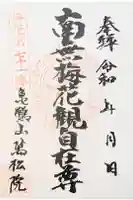 奉拝 令和 年 月 日
南無梅花観自在尊
亀鶴山萬松院